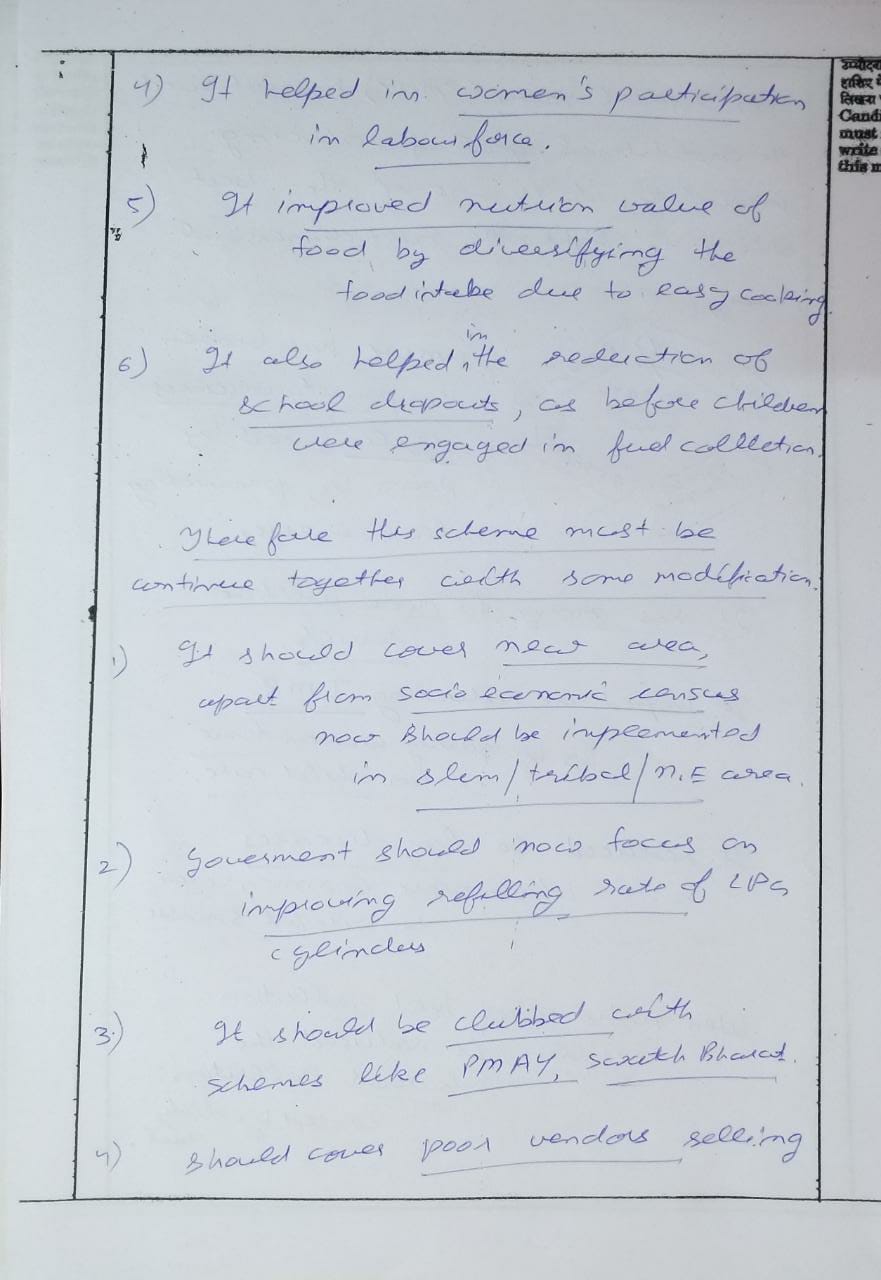 4) It helped in women's participation
in labour force.
5) It improved nutrion value of
food by diversifying the
food intake due to easy cooking
6) It also helped in the reduction of
school dropouts, as before children
were engaged in fuel colletion.
Therefore this scheme must be
continue together with some modification.
1) It should cover new area,
apart from socio economic census
now should be implemented
in slum/tribal/N.E area.
2) Goverment should now focus on
improving refilling rate of LPG
cylinders
3.) It should be clubbed with
schemes like PMAY, Swatch Bharat.
4) should cover poor vendors selling
उम्मीदवा
हाशिए
Candi
must
write
this m